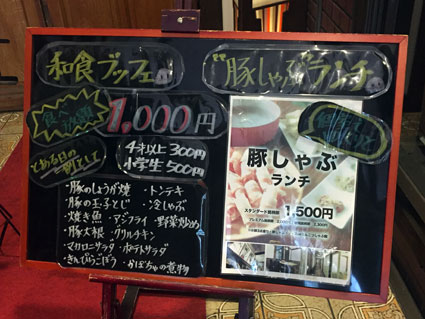 和食ブッフェ
食べ放題
1,000円
4才以上300円
小学生500円
とある日の一例として
・豚のしょうが焼 ・トンテキ
・豚の玉子とじ ・冷しゃぶ
・焼き魚 ・アジフライ ・野菜炒め
・豚大根 ・グリルチキン
・マカロニサラダ ・ポテトサラダ
・きんぴらごぼう ・かぼちゃの煮物
豚しゃぶランチ
豚しゃぶ
ランチ
1,500円